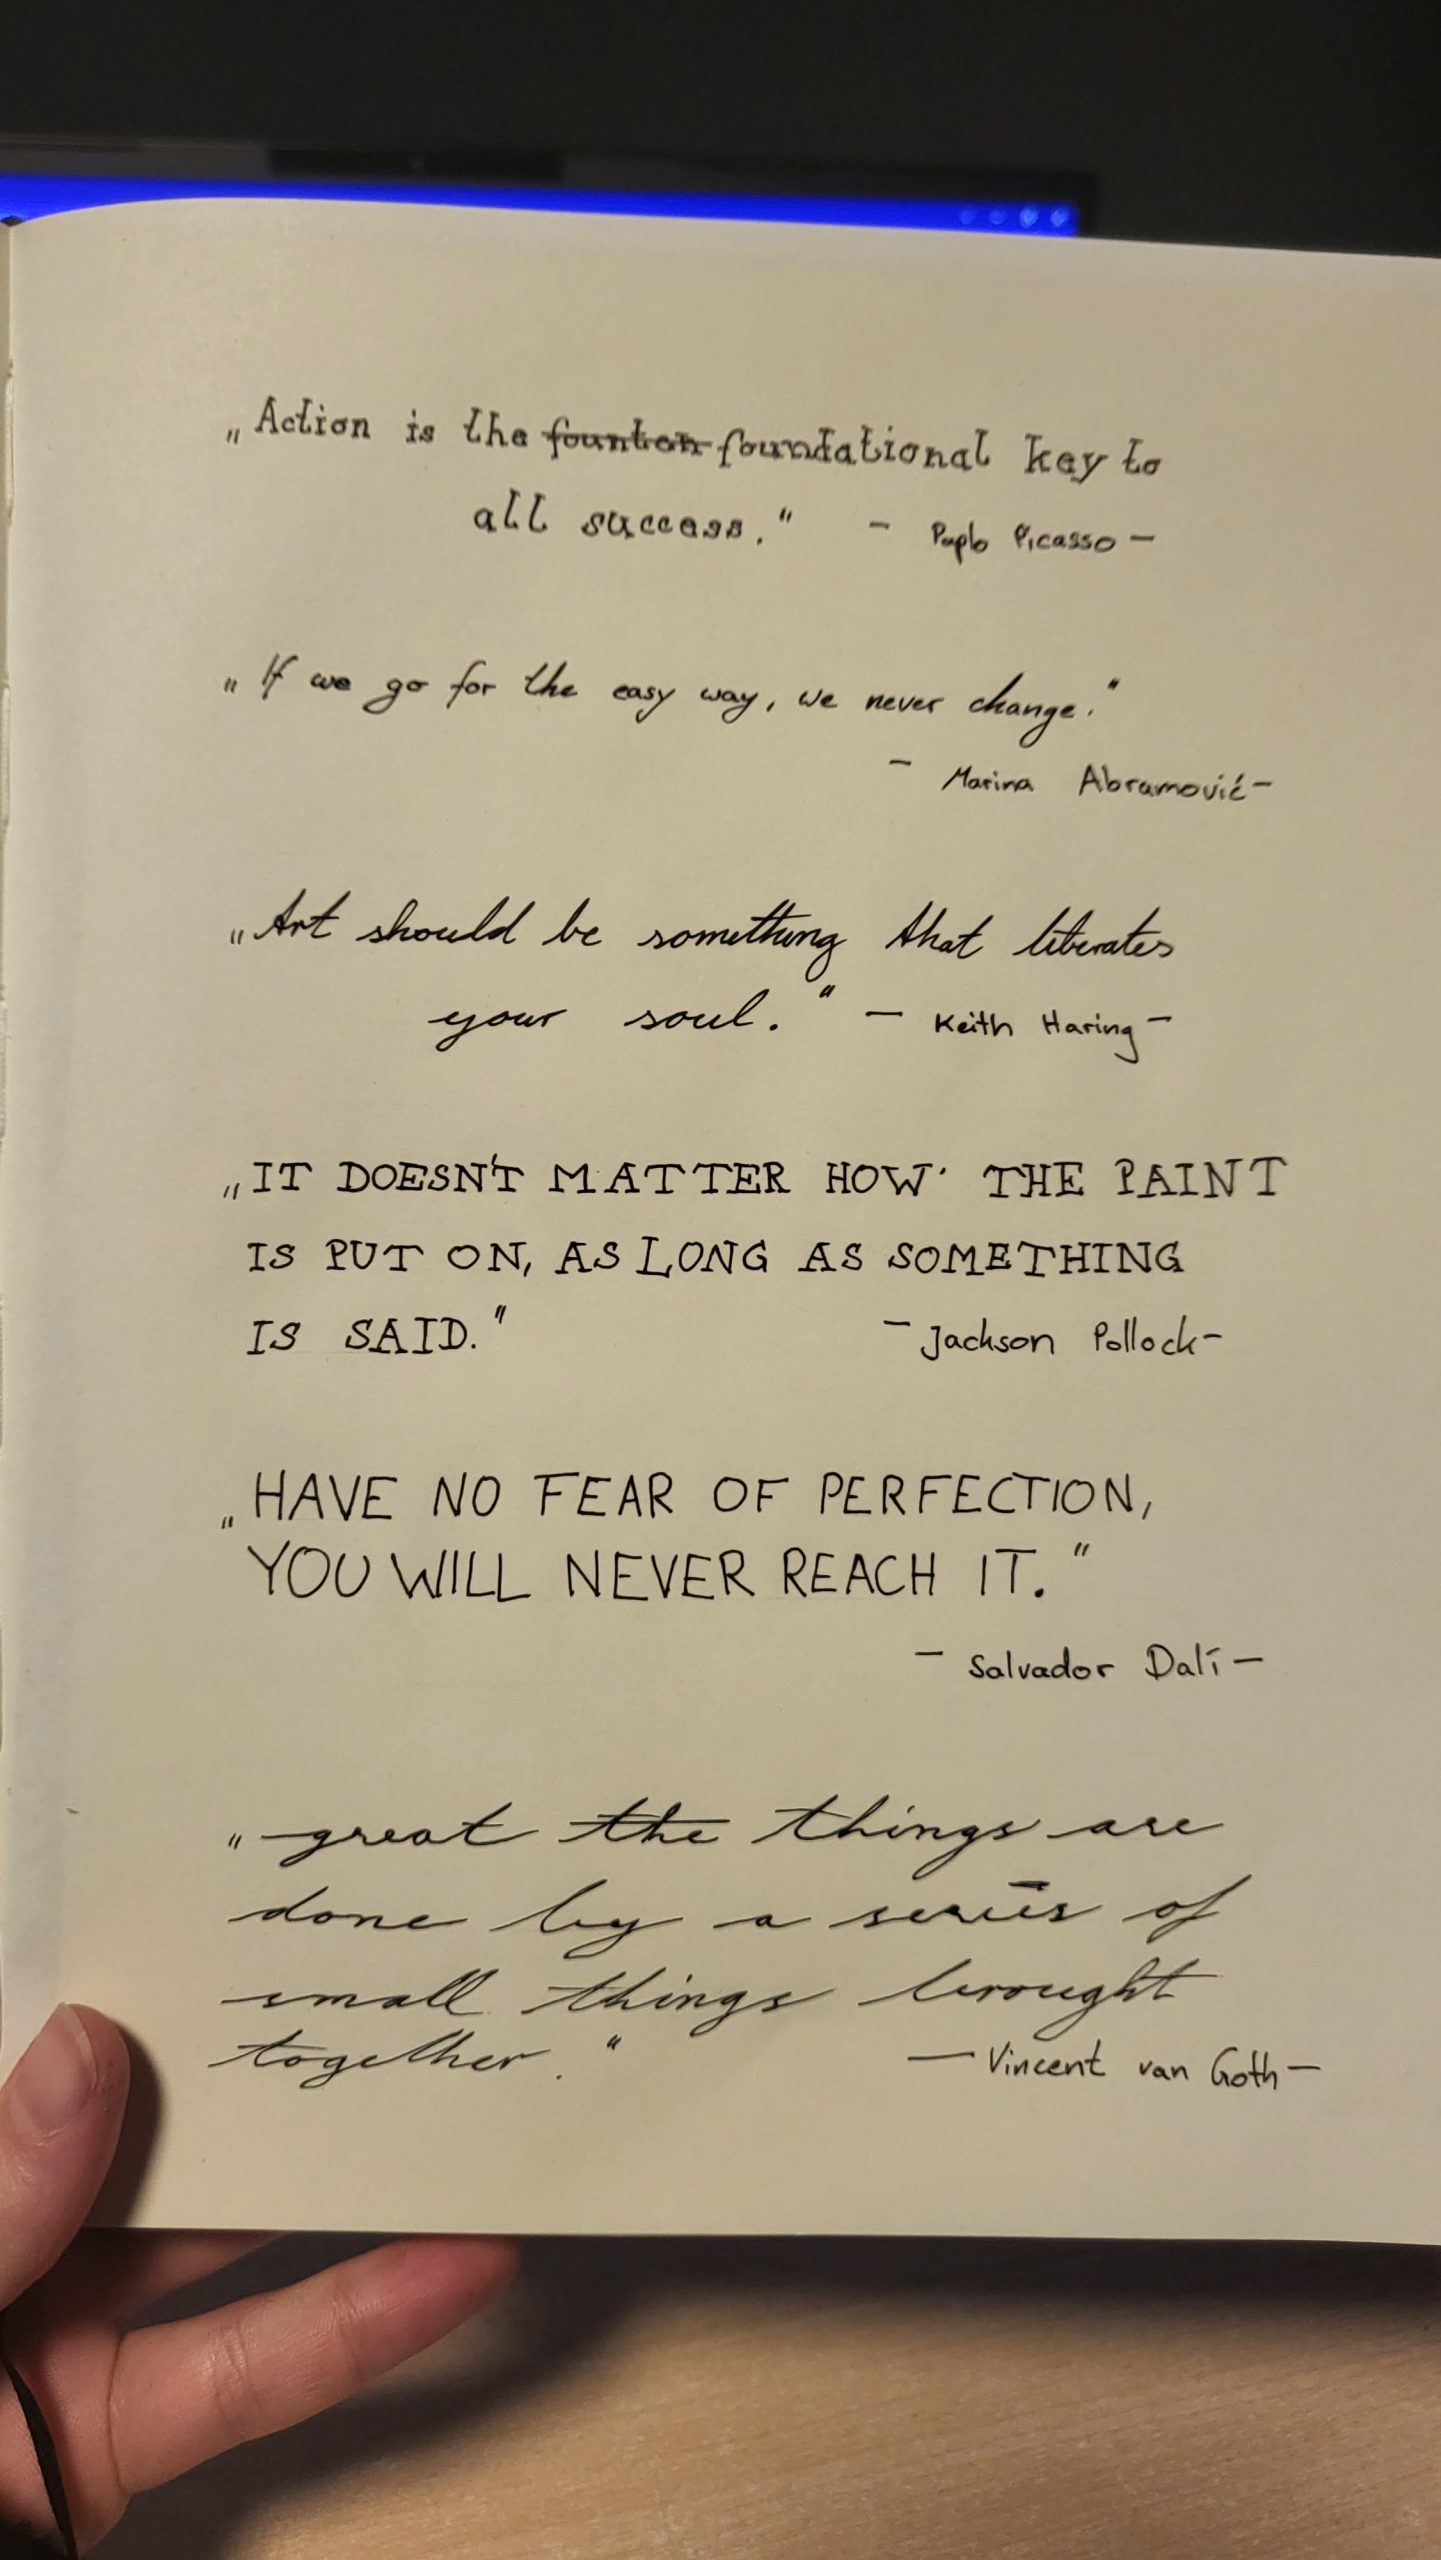 „Action is the founton foundational key to
all success." - Paplo Picasso -
„If we go for the easy way, we never change."
- Marina Abramović -
„Art should be something that liberates
your soul." - Keith Haring -
„IT DOESN'T MATTER HOW THE PAINT
IS PUT ON, AS LONG AS SOMETHING
IS SAID."
- Jackson Pollock -
„HAVE NO FEAR OF PERFECTION,
YOU WILL NEVER REACH IT."
- Salvador Dalí -
„great the things are
done by a series of
small things brought
together."
- Vincent van Goth -